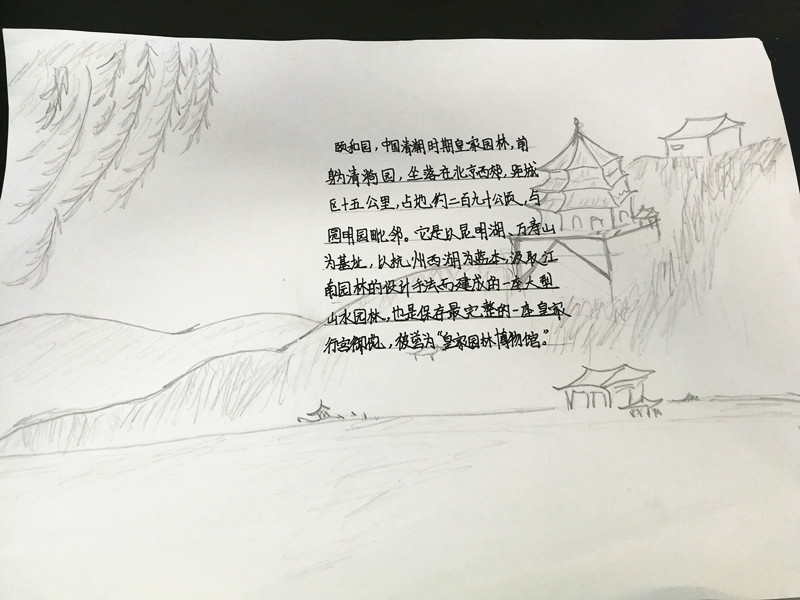 颐和园，中国清朝时期皇家园林，前
身为清漪园，坐落在北京西郊，距城
区十五公里，占地约二百九十公顷，与
圆明园毗邻。它是以昆明湖、万寿山
为基址，以杭州西湖为蓝本，汲取江
南园林的设计手法而建成的一座大型
山水园林，也是保存最完整的一座皇家
行宫御苑，被誉为“皇家园林博物馆。”